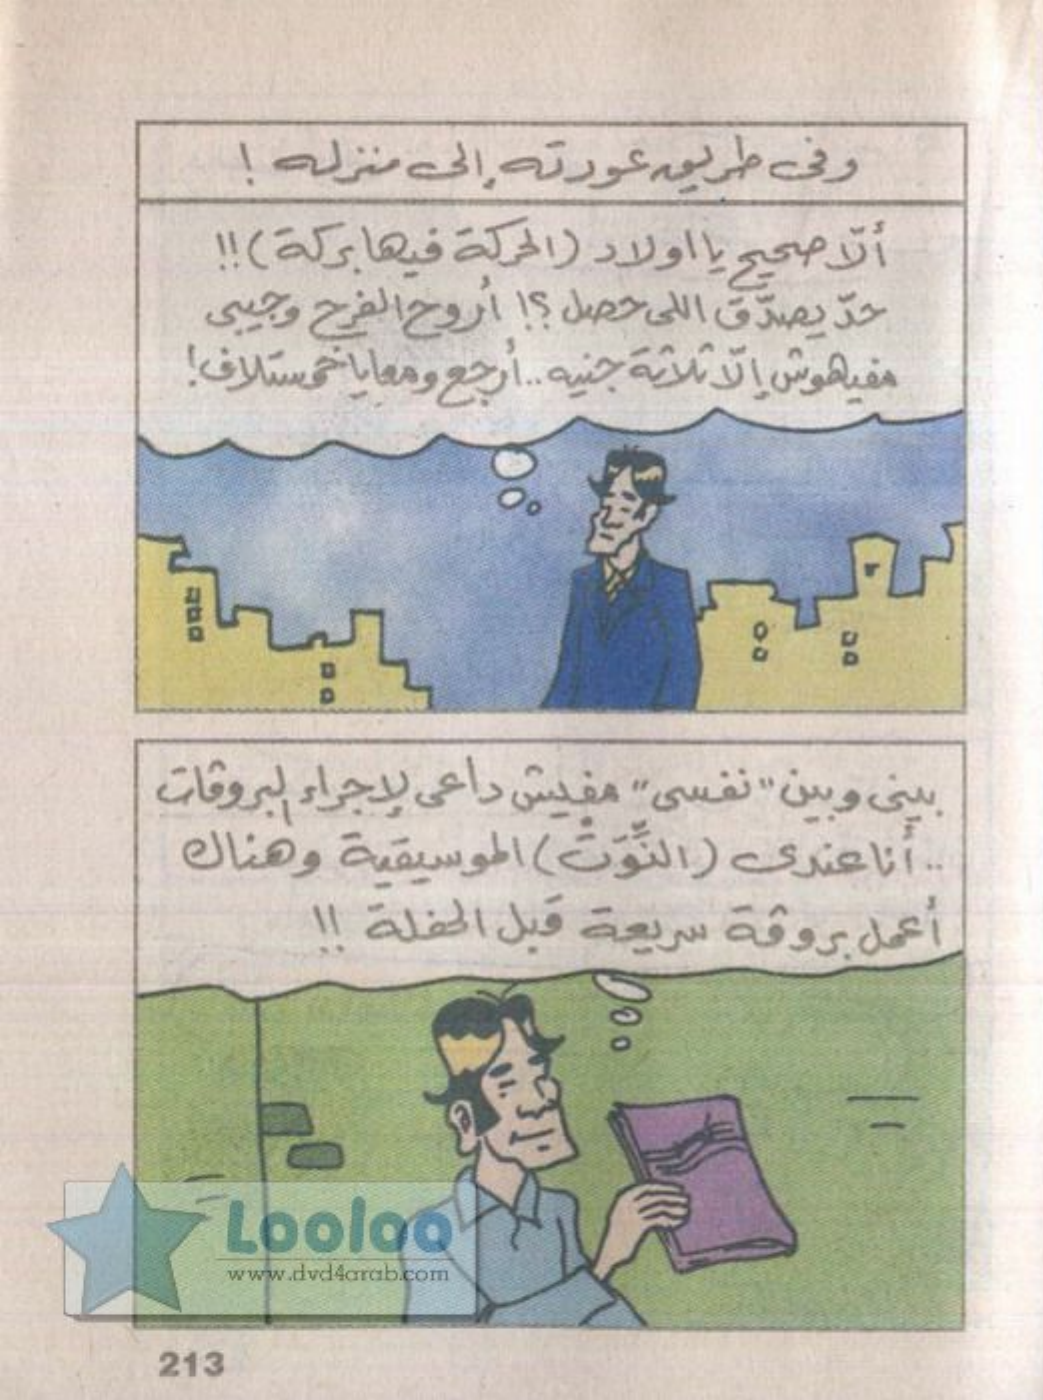 وفى طريق عودته إلى منزله !
ألّا صحيح يا اولاد (الحركة فيها بركة) !!
حدّ يصدّق اللى حصل ؟! أروح الفرح وجيبى
مفيهوش إلّا ثلاثة جنيه .. أرجع ومعايا خمستلاف !
بينى وبين "نفسى" مفيش داعى لإجراء البروڤات
.. أنا عندى (النُّوَتْ) الموسيقية وهناك
أعمل بروڤة سريعة قبل الحفلة !!
Looloo
www.dvd4arab.com
213